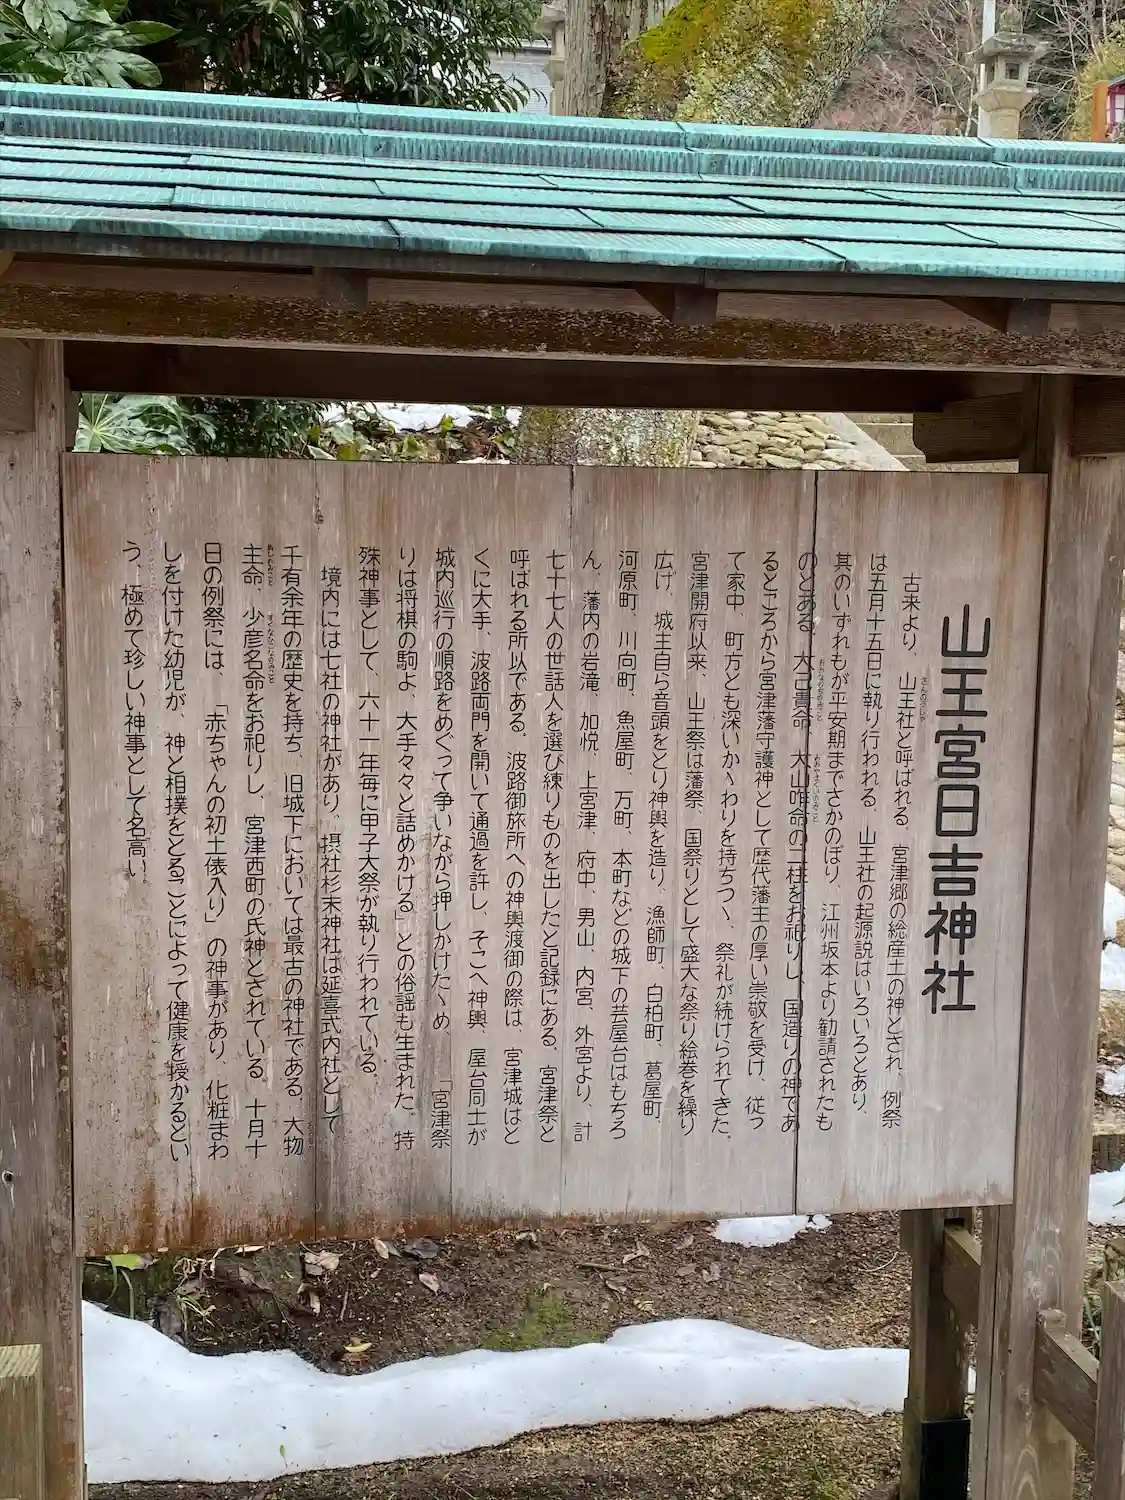 山王宮日吉神社
古来より、山王社と呼ばれる。宮津郷の総産土の神とされ、例祭
は五月十五日に執り行われる。山王社の起源説はいろいろとあり、
其のいずれもが平安期までさかのぼり、江州坂本より勧請されたも
のとある。大己貴命、大山咋命の二柱をお祀りし、国造りの神であ
るところから宮津藩守護神として歴代藩主の厚い崇敬を受け、従っ
て家中、町方とも深いかゝわりを持ちつゝ、祭礼が続けられてきた。
宮津開府以来、山王祭は藩祭、国祭りとして盛大な祭り絵巻を繰り
広げ、城主自ら音頭をとり神輿を造り、漁師町、白柏町、葛屋町、
河原町、川向町、魚屋町、万町、本町などの城下の芸屋台はもちろ
ん、藩内の岩滝、加悦、上宮津、府中、男山、内宮、外宮より、計
七十七人の世話人を選び練りものを出したと記録にある。宮津祭と
呼ばれる所以である。波路御旅所への神輿渡御の際は、宮津城はと
くに大手、波路両門を開いて通過を許し、そこへ神輿、屋台同士が
城内巡行の順路をめぐって争いながら押しかけたゝめ、「宮津祭
りは将棋の駒よ、大手々々と詰めかける」との俗謡も生まれた。特
殊神事として、六十一年毎に甲子大祭が執り行われている。
境内には七社の神社があり、摂社杉末神社は延喜式内社として
千有余年の歴史を持ち、旧城下においては最古の神社である。大物
主命、少彦名命をお祀りし、宮津西町の氏神とされている。十月十
日の例祭には、「赤ちゃんの初土俵入り」の神事があり、化粧まわ
しを付けた幼児が、神と相撲をとることによって健康を授かるとい
う、極めて珍しい神事として名高い。